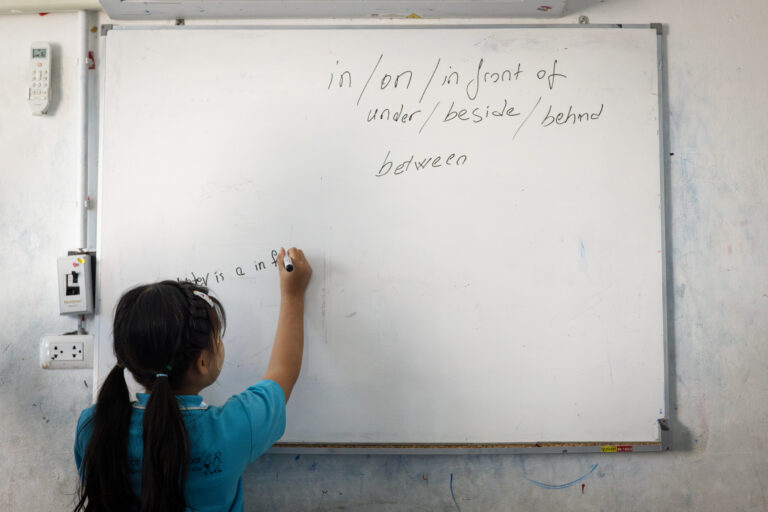 in / on / in front of
under / beside / behind
between
is a in f